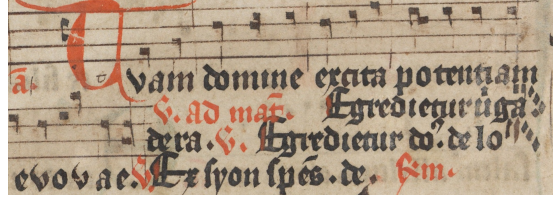 a. Tuam domine excita potentiam
V. ad mat. Egredietur uirga
de ra. V. Egredietur do. de lo
evovae. V Ex syon spes. de. Fm.